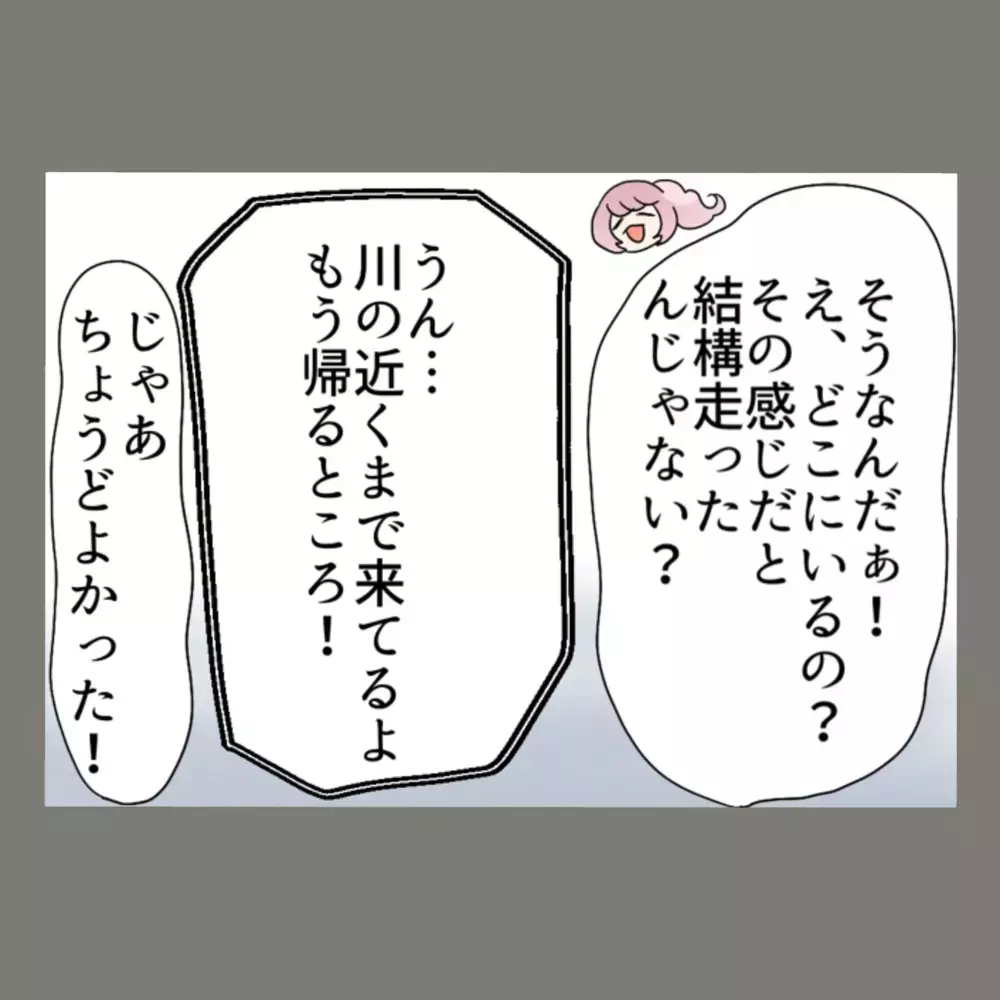 そうなんだぁ！
え、どこにいるの？
その感じだと
結構走った
んじゃない？
うん…
川の近くまで来てるよ
もう帰るところ！
じゃあ
ちょうどよかった！